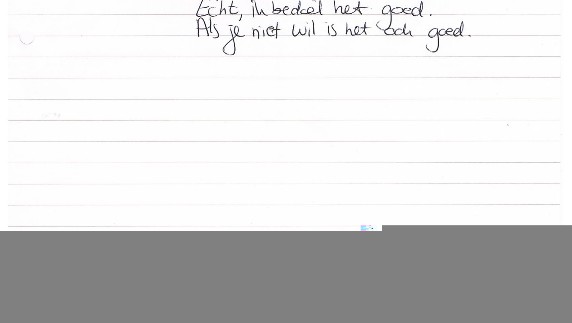 Echt, ik bedoel het goed.
Als je niet wil is het ook goed.